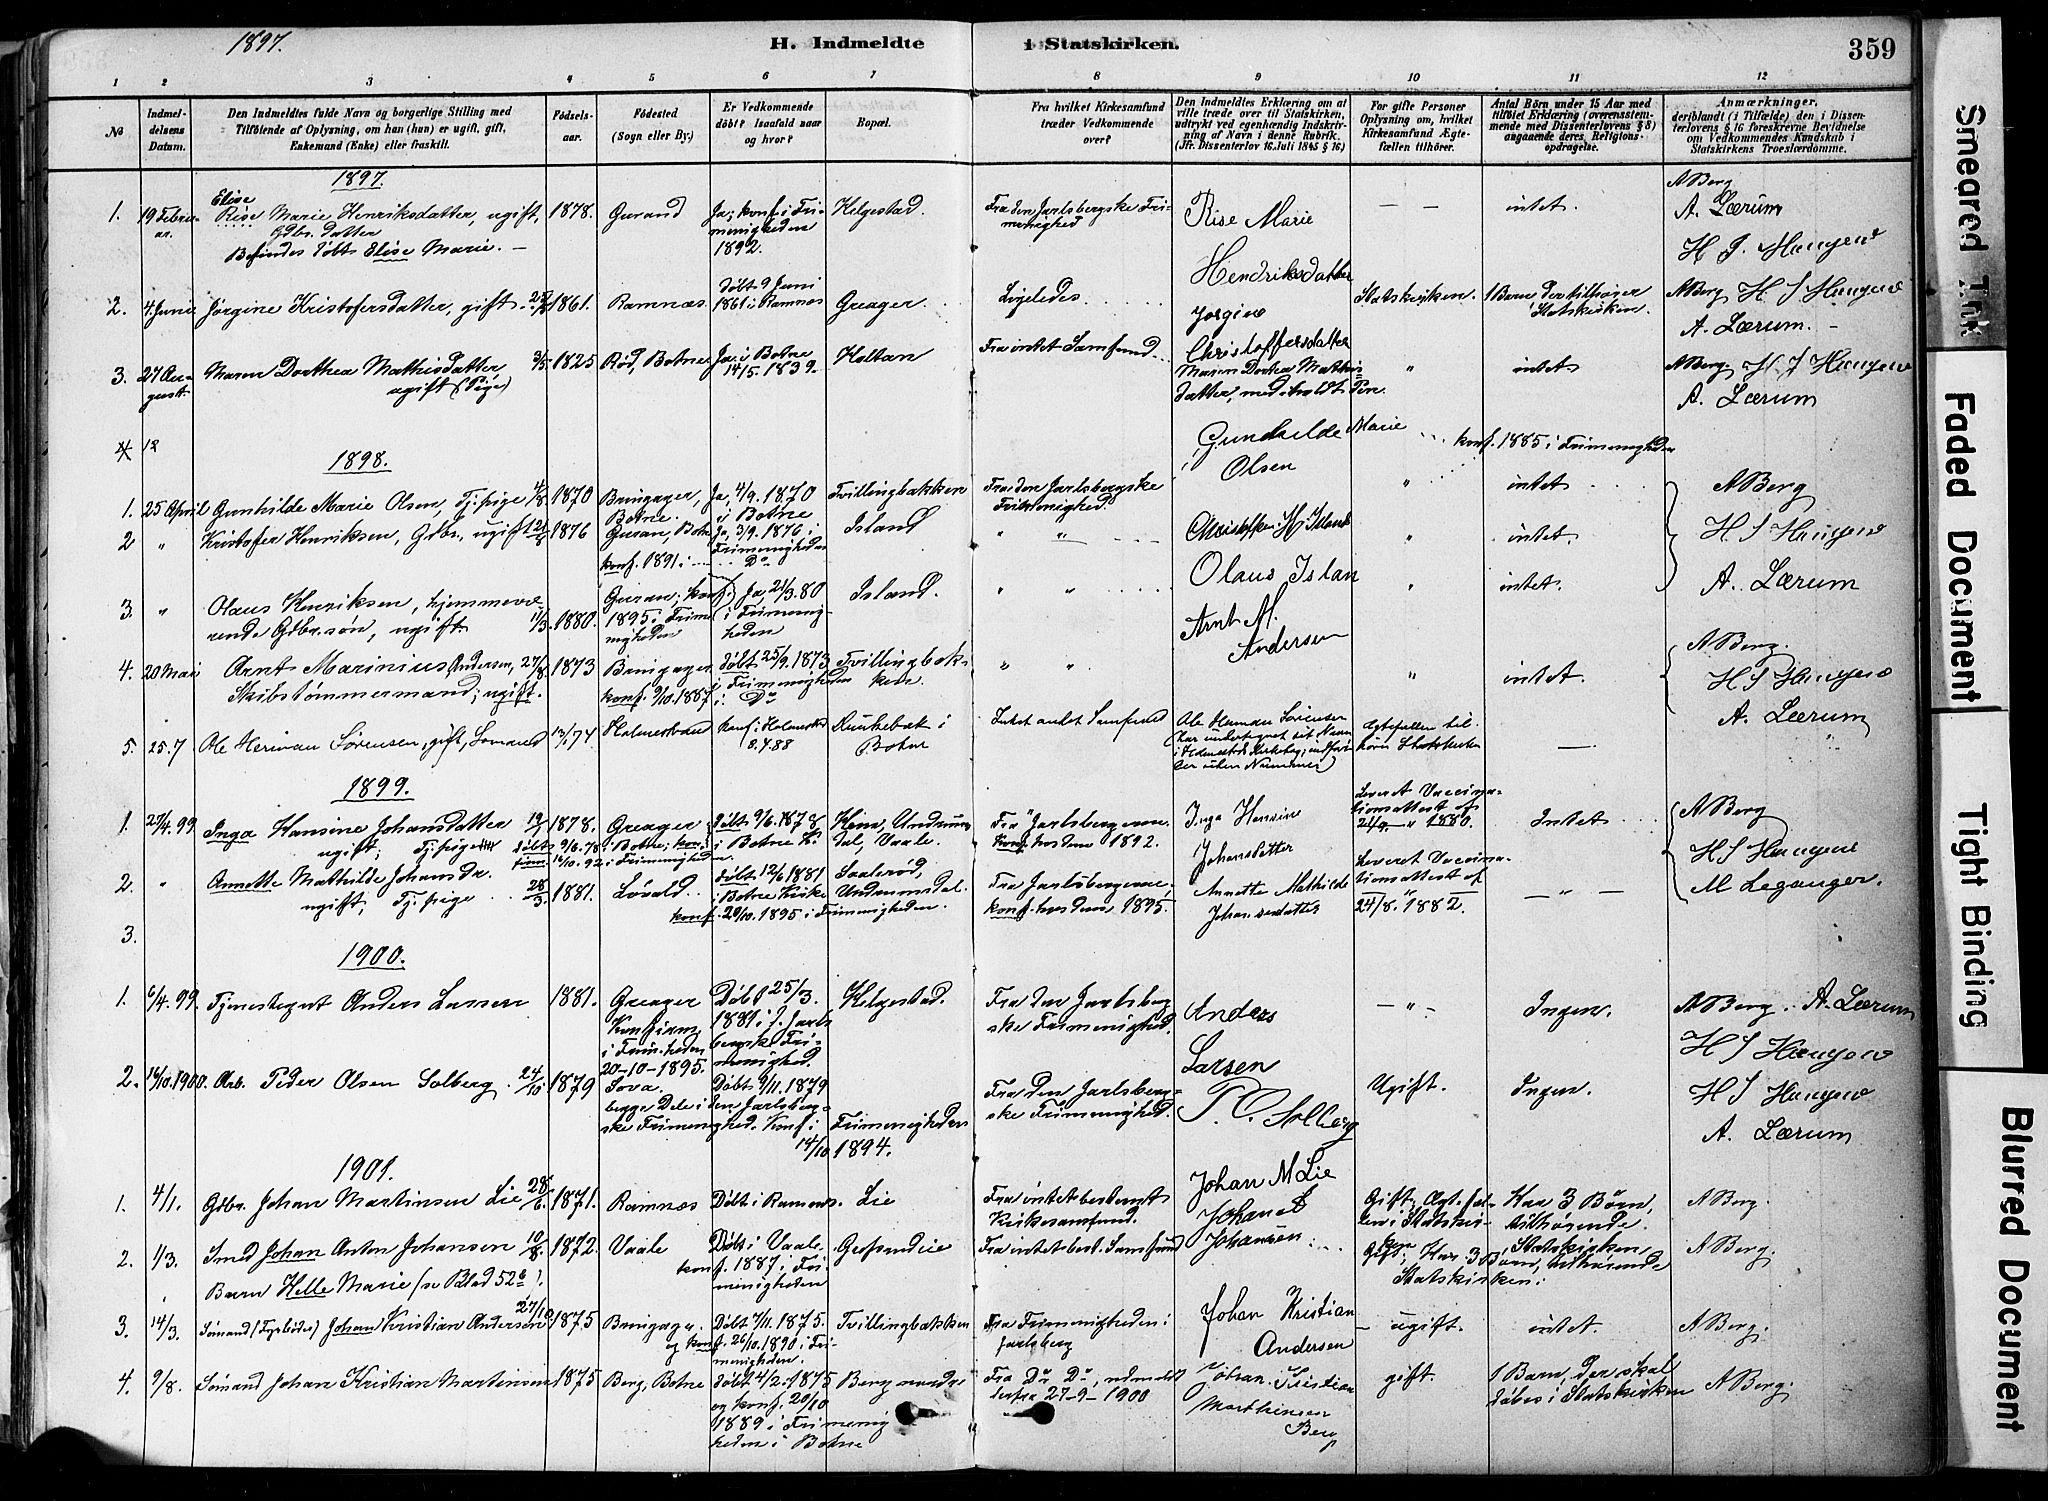 1897.
H. Indmeldte i Statskirken.
359
1 2 3 4 5 6 7 8 9 10 11 12
No
Indmel-
delsens
Datum.
Den Indmeldtes fulde Navn og borgerlige Stilling med
Tilföiende af Oplysning, om han (hun) er ugift, gift,
Enkemand (Enke) eller fraskilt.
Födsels-
aar.
Födested
(Sogn eller By.)
Er Vedkommende
döbt? Isaafald naar
og hvor?
Bopæl.
Fra hvilket Kirkesamfund
træder Vedkommende
over?
Den Indmeldtes Erklæring om at
ville træde over til Statskirken,
udtrykt ved egenhændig Indskriv-
ning af Navn i denne Rubrik.
(Jfr. Dissenterlov 16. Juli 1845 § 16)
For gifte Personer
Oplysning om, hvilket
Kirkesamfund Ægte-
fællen tilhörer.
Antal Börn under 15 Aar med
tilföiet Erklæring (overensstem-
mende med Dissenterlovens § 8)
angaaende deres Religions-
opdragelse.
Anmærkninger,
deriblandt (i Tilfælde) den i Dissen-
terlovens § 16 foreskrevne Bevidnelse
om Vedkommendes Kundskab i
Statskirkens Troeslærdomme.
1897.
1. 19 Febru-
ar.
Elise
Rise Marie Henriksdatter, ugift,
Gdbr. datter
Befindes døbt Elise Marie. —
1878. Gurand
Ja; konf. i Fri-
menigheden
1892.
Helgestad.
Fra den Jarlsbergske Fri-
menighed
Rise Marie
Hendriksdatter
— — intet.
A Berg
A. Lærum
H J Haugen
2. 4 Juni Jørgine Kristofersdatter, gift. 1861. Ramnæs.
Døbt 9 Juni
1861 i Ramnæs
Greager
Ligeledes
Jorgine
Christoffersdatter
Statskirken.
1 Barn der tilhører
Statskirken.
A Berg H J Haugen
A. Lærum. -
3. 27 Au-
gust.
Maren Dorthea Mathisdatter
ugift (Pige)
3/5 1825 Rød, Botne
Ja, i Botne
14/5. 1839.
Holtan
Fra intet Samfund
Maren Dorthea Mathis-
datter, med iholdt Pen.
" intet
A Berg. H J Haugen
A. Lærum
4 12
1898.
Gunhilde Marie
Olsen
konf. 1885 i Frimenigheden
1. 25 April Gunhilde Marie Olsen, Tj.pige 4/8 1870
Bringager,
Botne.
Ja, 4/9. 1870
i Botne
Tvillingbakken
Fra den Jarlsbergske
Frimenighed.
" intet
A Berg
2 " Kristofer Henriksen, Gdbr., ugift 21/8 1876
Guran, Botne
konf. 1891 i
Ja, 3/9. 1876 i
Frimenigheden
Do
Island
" "
Christoffer H Island
" intet.
H J Haugen
3. " Olaus Henriksen, hjemmevæ-
rende Gdbr.søn, ugift.
11/3. 1880.
Guran; konf.
1895 i Frime-
nigheden
Ja, 21/3. 80
i Frimenig-
heden
Island.
" "
Olaus Islan
" intet.
A. Lærum
4. 20 Mai Arnt Marinius Andersen,
Skibstømmermand; ugift.
27/8. 1873
Bringager
konf. 9/10. 1887 i
Døbt 25/9. 1873
i Frimenigheden
Do
Tvillingbak-
ken.
" "
Arnt M.
Andersen
" intet.
A Berg.
H J Haugen
A. Lærum
5. 25.7 Ole Herman Sørensen, gift, Sømand 13/1 74
Holmestrand
konf. i Holmestrand
8. 4. 88
Runkebæk i
Botne
Intet andet Samfund
Ole Herman Sørensen
(har undertegnet sit Navn
Ægtefellen til-
hører Statskirken
—
1899.
1. 27/4. 99. Inga Hansine Johansdatter
ugift; Tj.pige
19/1 1878.
døbt 9/6. 78 i Botne; kon-
firm. 14/10. 92 i Frimenigheden.
Greager
Døbt 9/6. 1878
i Botne K.
Heim, Undrums-
dal, Vaale.
Fra Jarlsbergerne
konf. hos dem 1892.
Inga Hansine
Johansdatter
Leveret Vaccina-
tionsattest af
21/9. 1880.
Intet
A Berg
H J Haugen
2. " Annette Mathilde Johansdr.
ugift, Tj.pige
28/3. 1881. Løvald
Døbt 12/6 1881
i Botne Kirke
konf. 20/10. 1895 i Frimenigheden.
Saalerød,
Undrumsdal.
Fra Jarlsbergerne
konf. hos dem 1895.
Annette Mathilde
Johansedatter
Leveret Vaccina-
tionsattest af
24/8. 1882.
— " —
M Leganger.
3.
1900.
1. 6/4. 99. Tjenestegut Anders Larsen 1881.
Greager
Konfirm.
i Frim.heden
20-10-1895.
Døbt 25/3.
1881 i d. Jarls-
bergske Fri-
menighed.
Helgestad.
Fra den Jarlsberg-
ske Frimenighed.
Anders
Larsen
— " - Ingen.
A Berg. A. Lærum
H J Haugen
2. 14/10. 1900. Arb. Peder Olsen Solberg. 24/10 1879
Sova.
begge Dele i den Jarlsberg-
ske Frimenighed. Konf. i Frimenigheden
14/10 1894.
Døbt 9/11. 1879
Fra den Jarlsberg-
ske Frimenighed.
P. O. Solberg
Ugift. Ingen.
H J Haugen
A. Lærum
1901.
1. 4/1. Gdbr. Johan Martinsen Lie 28/6. 1871. Ramnæs Døbt i Ramnæs. Lie
Fra intet bestemt
Kirkesamfund.
Johan M Lie
Gift; Ægtefæl-
len i Statskir-
ken
Har 3 Børn,
tilhørende
Statskirken,
A Berg.
2. 1/3. Smed Johan Anton Johansen 10/8. 1872. Vaale
Døbt i Vaale
konf. 1887 i Fri-
menigheden
Fra intet best. Samfund
Johan A
Johansen
Gift; Har 3 Børn, tilhørende
Statskirken.
A Berg.
Barn Helle Marie (se Blad 52b).
3. 14/3. Sømand (Fyrbøder) Johan Kristian Andersen 27/10 1875 Bringager.
Døbt 7/11. 1875.
og konf. 26/10. 1890 i Fri-
menigheden.
Tvillingbakken
Fra Frimenigheden i
Jarlsberg
Johan Kristian
Andersen
ugift. intet.
A Berg.
4. 9/8. Sømand Johan Kristian Martinsen 1875 Berg, Botne
Døbt 4/2. 1875
og konf. 20/10
1889 i Frimenig-
heden i Botne
Berg nordre
Fra Do Do, udmeldt
derfra 27-9-1900
Johan Kristian
Marthinsen
Berg
gift.
1 Barn, der skal
døbes i Statskirken
A Berg.
Smeared Ink
Faded Document
Tight Binding
Blurred Document